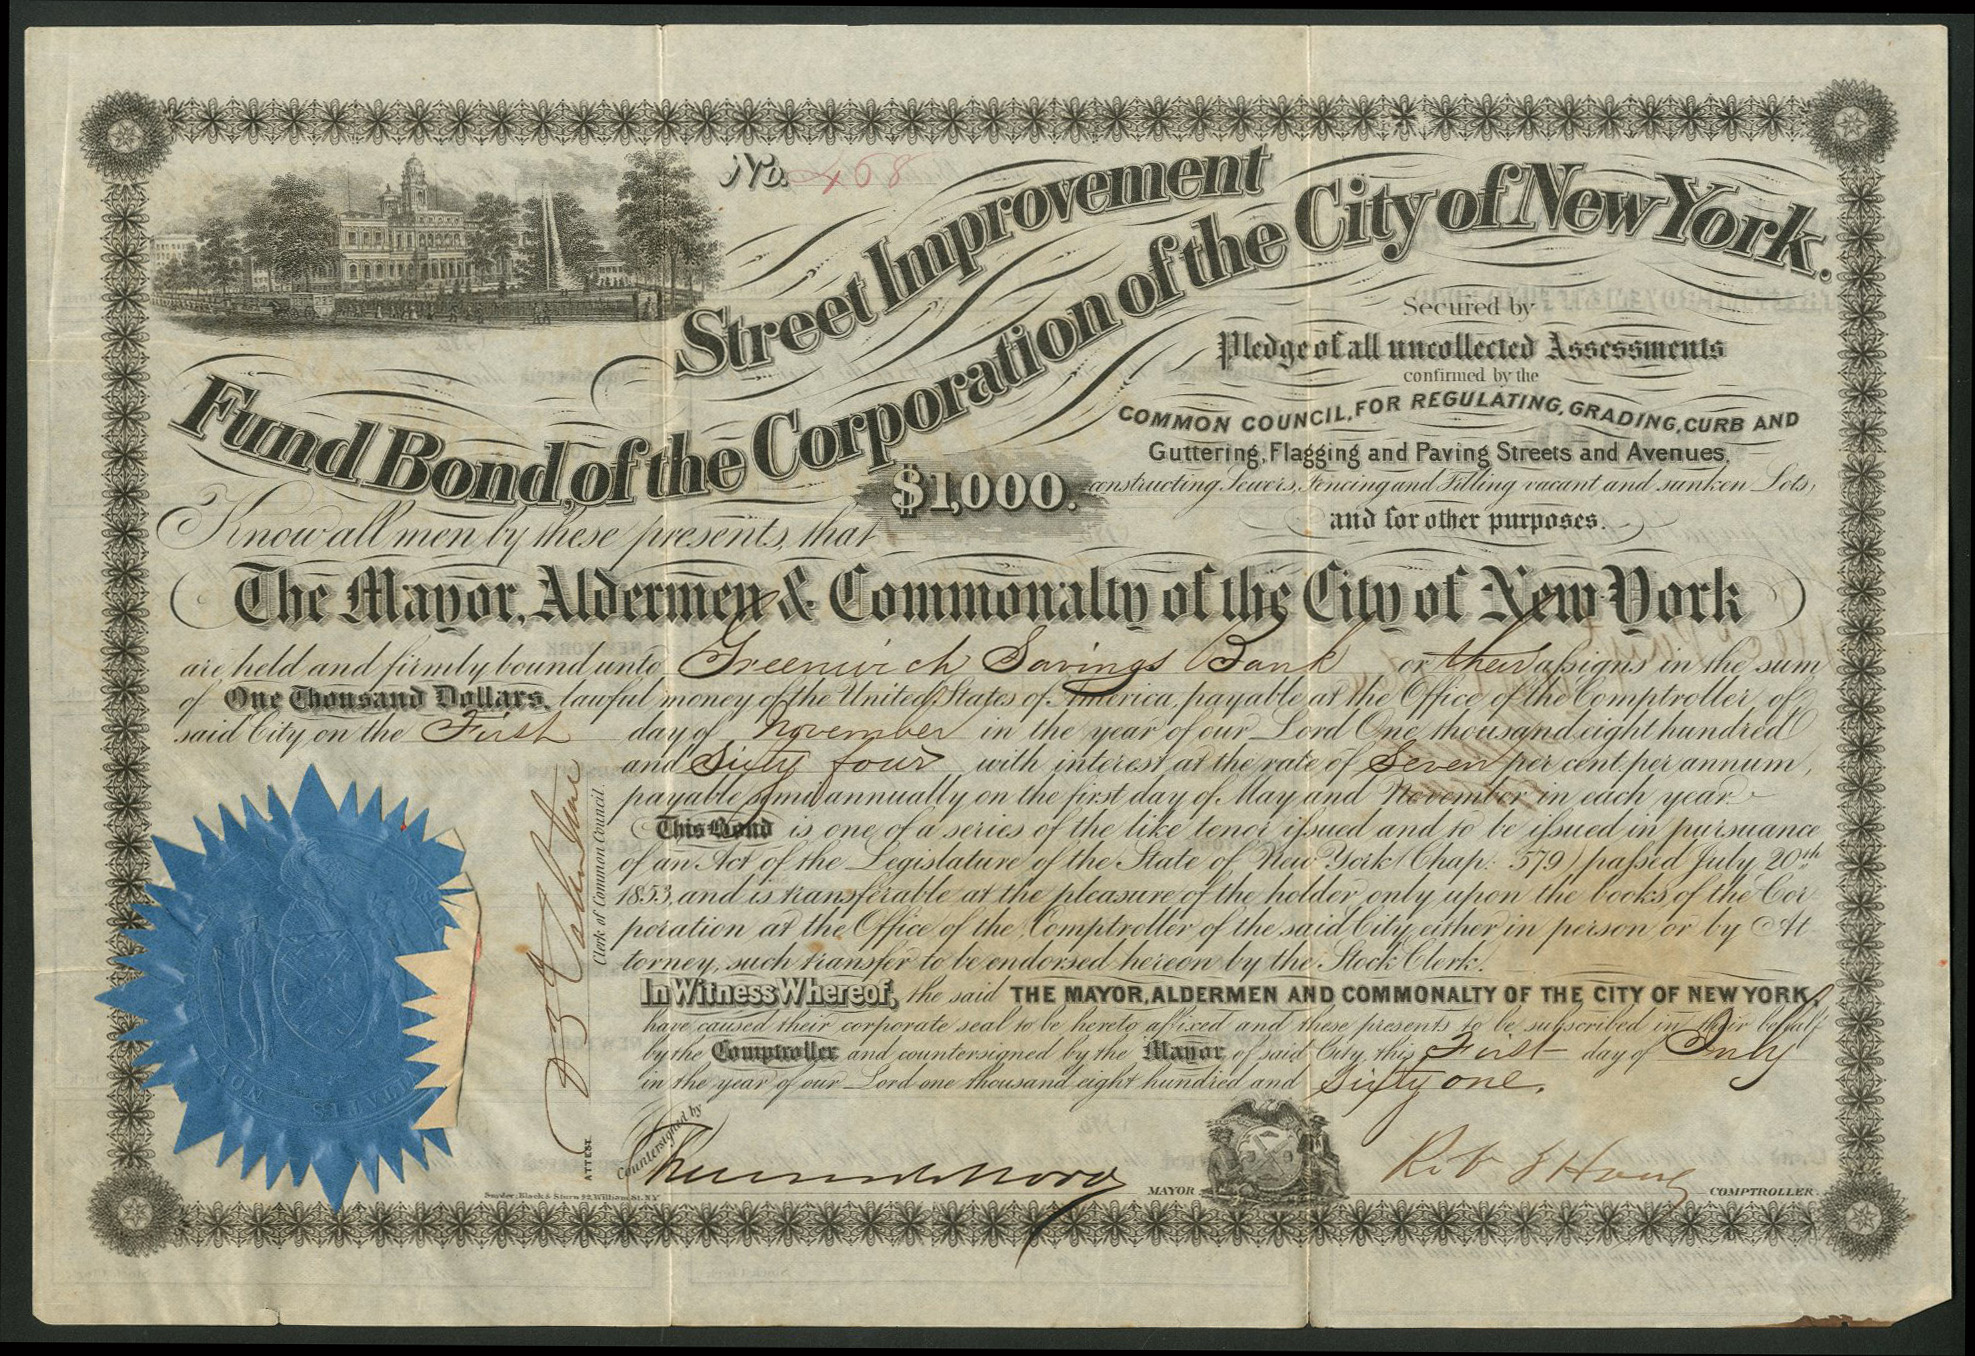 No. 468
Street Improvement
Fund Bond, of the Corporation of the City of New York.
Secured by
Pledge of all uncollected Assessments
confirmed by the
COMMON COUNCIL, FOR REGULATING, GRADING, CURB AND
Guttering, Flagging and Paving Streets and Avenues,
constructing Sewers, Fencing and Filling vacant and sunken Lots,
and for other purposes.
$1,000.
Know all men by these presents, that
The Mayor, Aldermen & Commonalty of the City of New York
are held and firmly bound unto Greenwich Savings Bank or their assigns in the sum
of One Thousand Dollars, lawful money of the United States of America, payable at the Office of the Comptroller of
said City on the First day of November in the year of our Lord One thousand eight hundred
and Sixty four with interest at the rate of Seven per cent. per annum,
payable semi annually on the first day of May and November in each year.
This Bond is one of a series of the like tenor issued and to be issued in pursuance
of an Act of the Legislature of the State of New York (Chap. 579) passed July 20th
1853, and is transferable at the pleasure of the holder only upon the books of the Cor
poration at the Office of the Comptroller of the said City, either in person or by At
torney, such transfer to be endorsed hereon by the Stock Clerk.
In Witness Whereof, the said THE MAYOR, ALDERMEN AND COMMONALTY OF THE CITY OF NEW YORK,
have caused their corporate seal to be hereto affixed and these presents to be subscribed in their behalf
by the Comptroller and countersigned by the Mayor of said City, this First day of July
in the year of our Lord one thousand eight hundred and Sixty one.
ATTEST
Clerk of Common Council.
Countersigned by
Fernando Wood MAYOR
Rob T Haws COMPTROLLER.
Snyder, Black & Sturn 92, William St. N.Y.